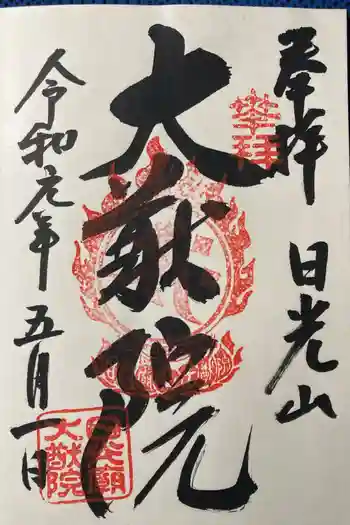 奉拝
日光山
大猷院
令和元年五月一日
奉拝
日光廟
大猷院